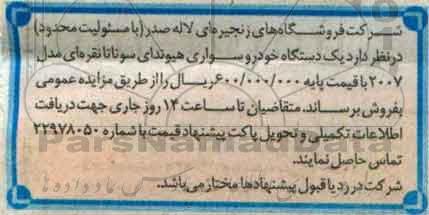 شرکت فروشگاه‌های زنجیره‌ای لاله صدر (با مسئولیت محدود)
درنظر دارد یک دستگاه خودرو سواری هیوندای سوناتا نقره‌ای مدل
۲۰۰۷ با قیمت پایه ۶۰۰/۰۰۰/۰۰۰ ریال را از طریق مزایده عمومی
بفروش برساند. متقاضیان تا ساعت ۱۴ روز جاری جهت دریافت
اطلاعات تکمیلی و تحویل پاکت پیشنهاد قیمت با شماره ۲۲۹۷۸۰۵۰
تماس حاصل نمایند.
ParsNamadData
شرکت در رد یا قبول پیشنهادها مختار می‌باشد.